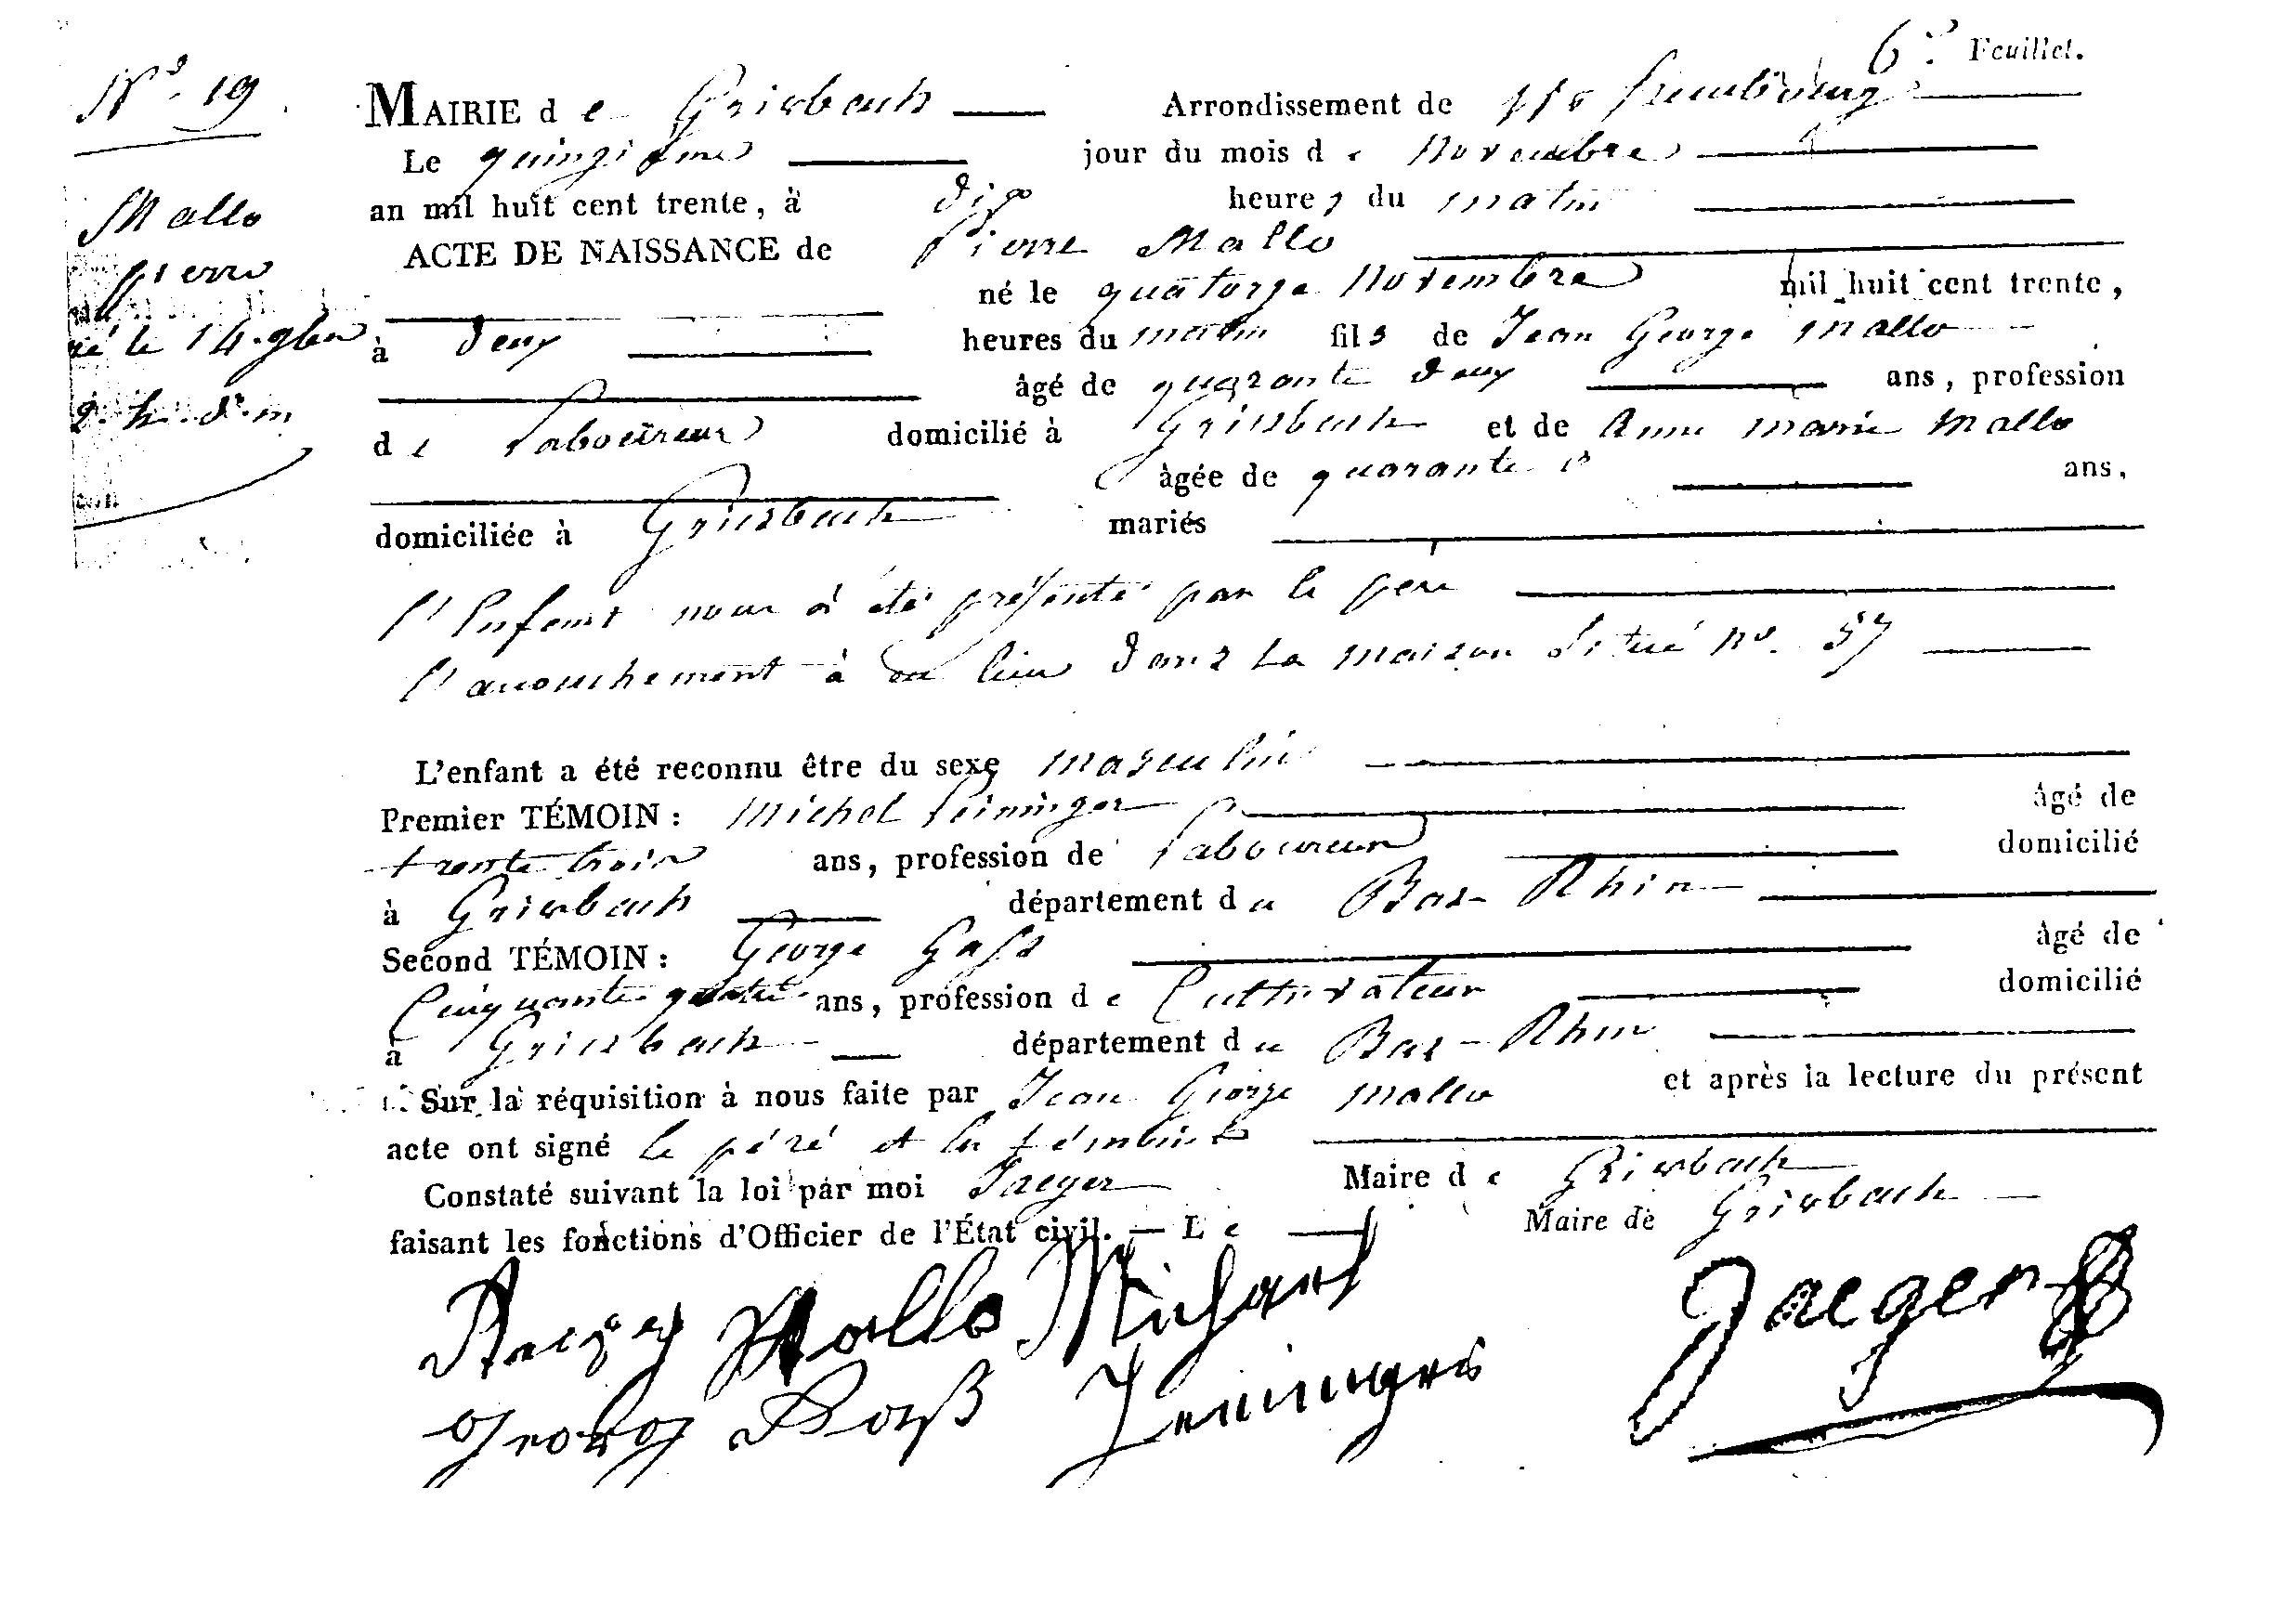 6.e Feuillet.
N.o 19
Mallo
pierre
né le 14. 9bre
2. h. d. m
MAIRIE de Griesbach Arrondissement de
Le quinzième jour du mois de Novembre
an mil huit cent trente, à dix heures du matin
ACTE DE NAISSANCE de Pierre Mallo
né le quatorze Novembre mil huit cent trente,
à deux heures du matin fils de Jean George Mallo
âgé de quarante deux ans, profession
de Laboureur domicilié à Griesbach et de Anne marie Mallo
âgée de quarante ans,
domiciliée à Griesbach mariés
l'Enfant nous à été présenté par le pere
l'accouchement à eu lieu dans la maison situé No. 57
L'enfant a été reconnu être du sexe masculin
Premier TÉMOIN : Michel Leininger âgé de
trente trois ans, profession de Laboureur domicilié
à Griesbach département du Bas-Rhin
Second TÉMOIN : George Gass âgé de
Cinquante quatre ans, profession de Cultivateur domicilié
à Griesbach département du Bas-Rhin
Sur la réquisition à nous faite par Jean George Mallo et après la lecture du présent
acte ont signé le péré et les témoins
Constaté suivant la loi par moi Jaeger Maire de Griesbach
faisant les fonctions d'Officier de l'État civil. — Le Maire de Griesbach
Mallo Michael Jaeger
Georg Gaß Leininger